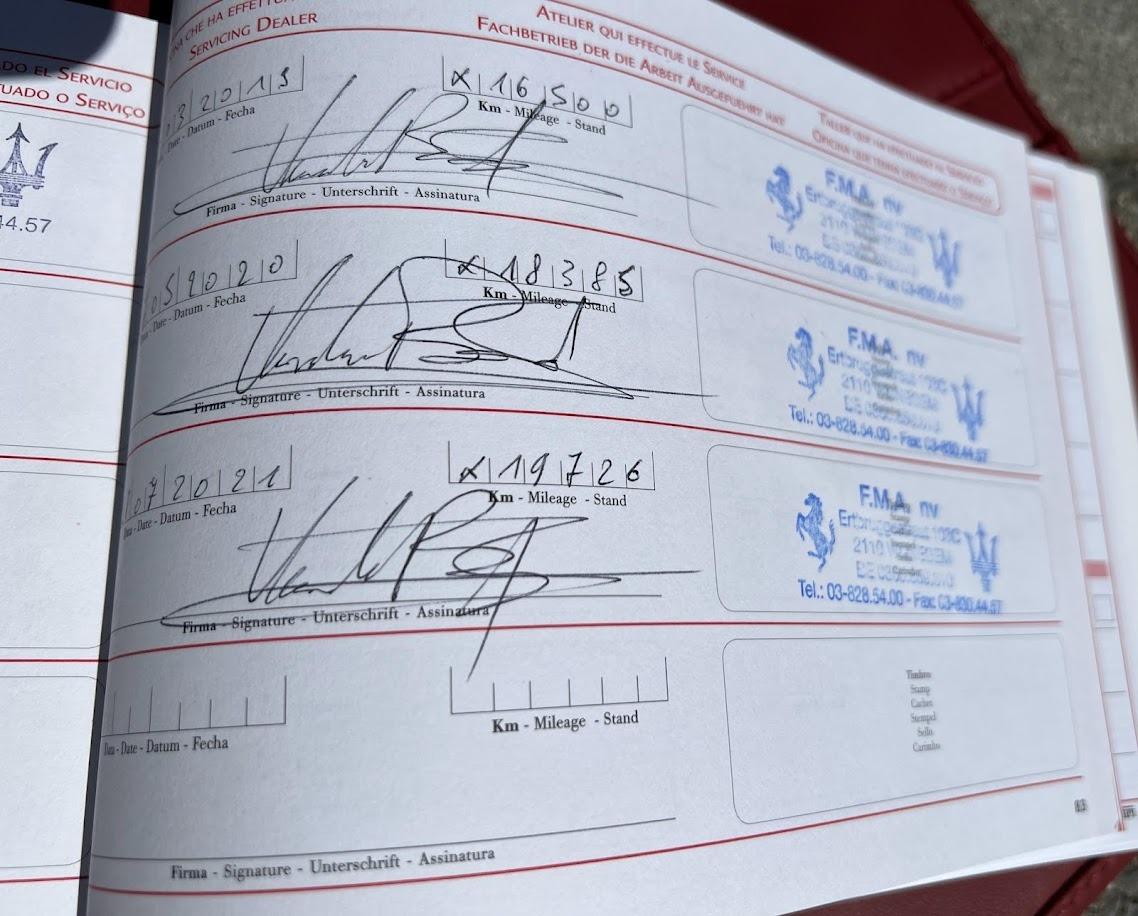 DO EL SERVICIO
TUADO O SERVIÇO
44.57
CHE HA EFFETTUA
SERVICING DEALER
ATELIER QUI EFFECTUE LE SERVICE
FACHBETRIEB DER DIE ARBEIT AUSGEFUEHRT HAT
TALLER QUE HA EFECTUADO EL SERVICIO
OFICINA QUE TENHA EFECTUADO O SERVIÇO
3 2013
Date - Datum - Fecha
16500
Km - Mileage - Stand
Firma - Signature - Unterschrift - Assinatura
F.M.A. nv
2110
Tel.: 03-828.54.00 - Fax: 03-830.44.57
05 2020
Date - Datum - Fecha
18385
Km - Mileage - Stand
Firma - Signature - Unterschrift - Assinatura
F.M.A. nv
2110
Tel.: 03-828.54.00 - Fax: 03-830.44.57
07 2021
Data - Date - Datum - Fecha
19726
Km - Mileage - Stand
Firma - Signature - Unterschrift - Assinatura
F.M.A. nv
2110
Tel.: 03-828.54.00 - Fax: 03-830.44.57
Data - Date - Datum - Fecha
Km - Mileage - Stand
Timbro
Stamp
Cachet
Stempel
Sello
Carimbo
Firma - Signature - Unterschrift - Assinatura